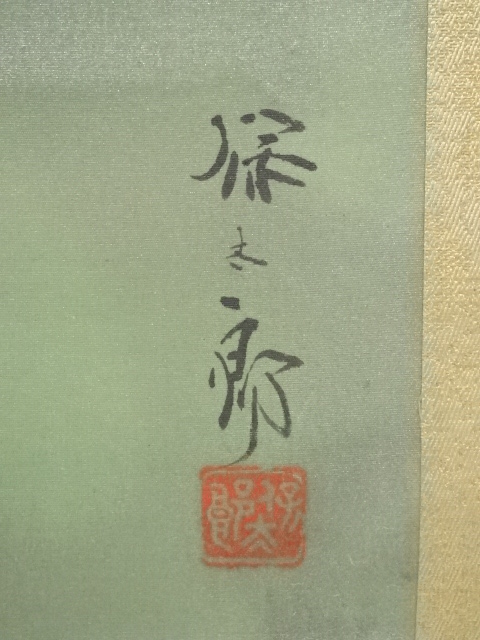 保太郎
保太郎